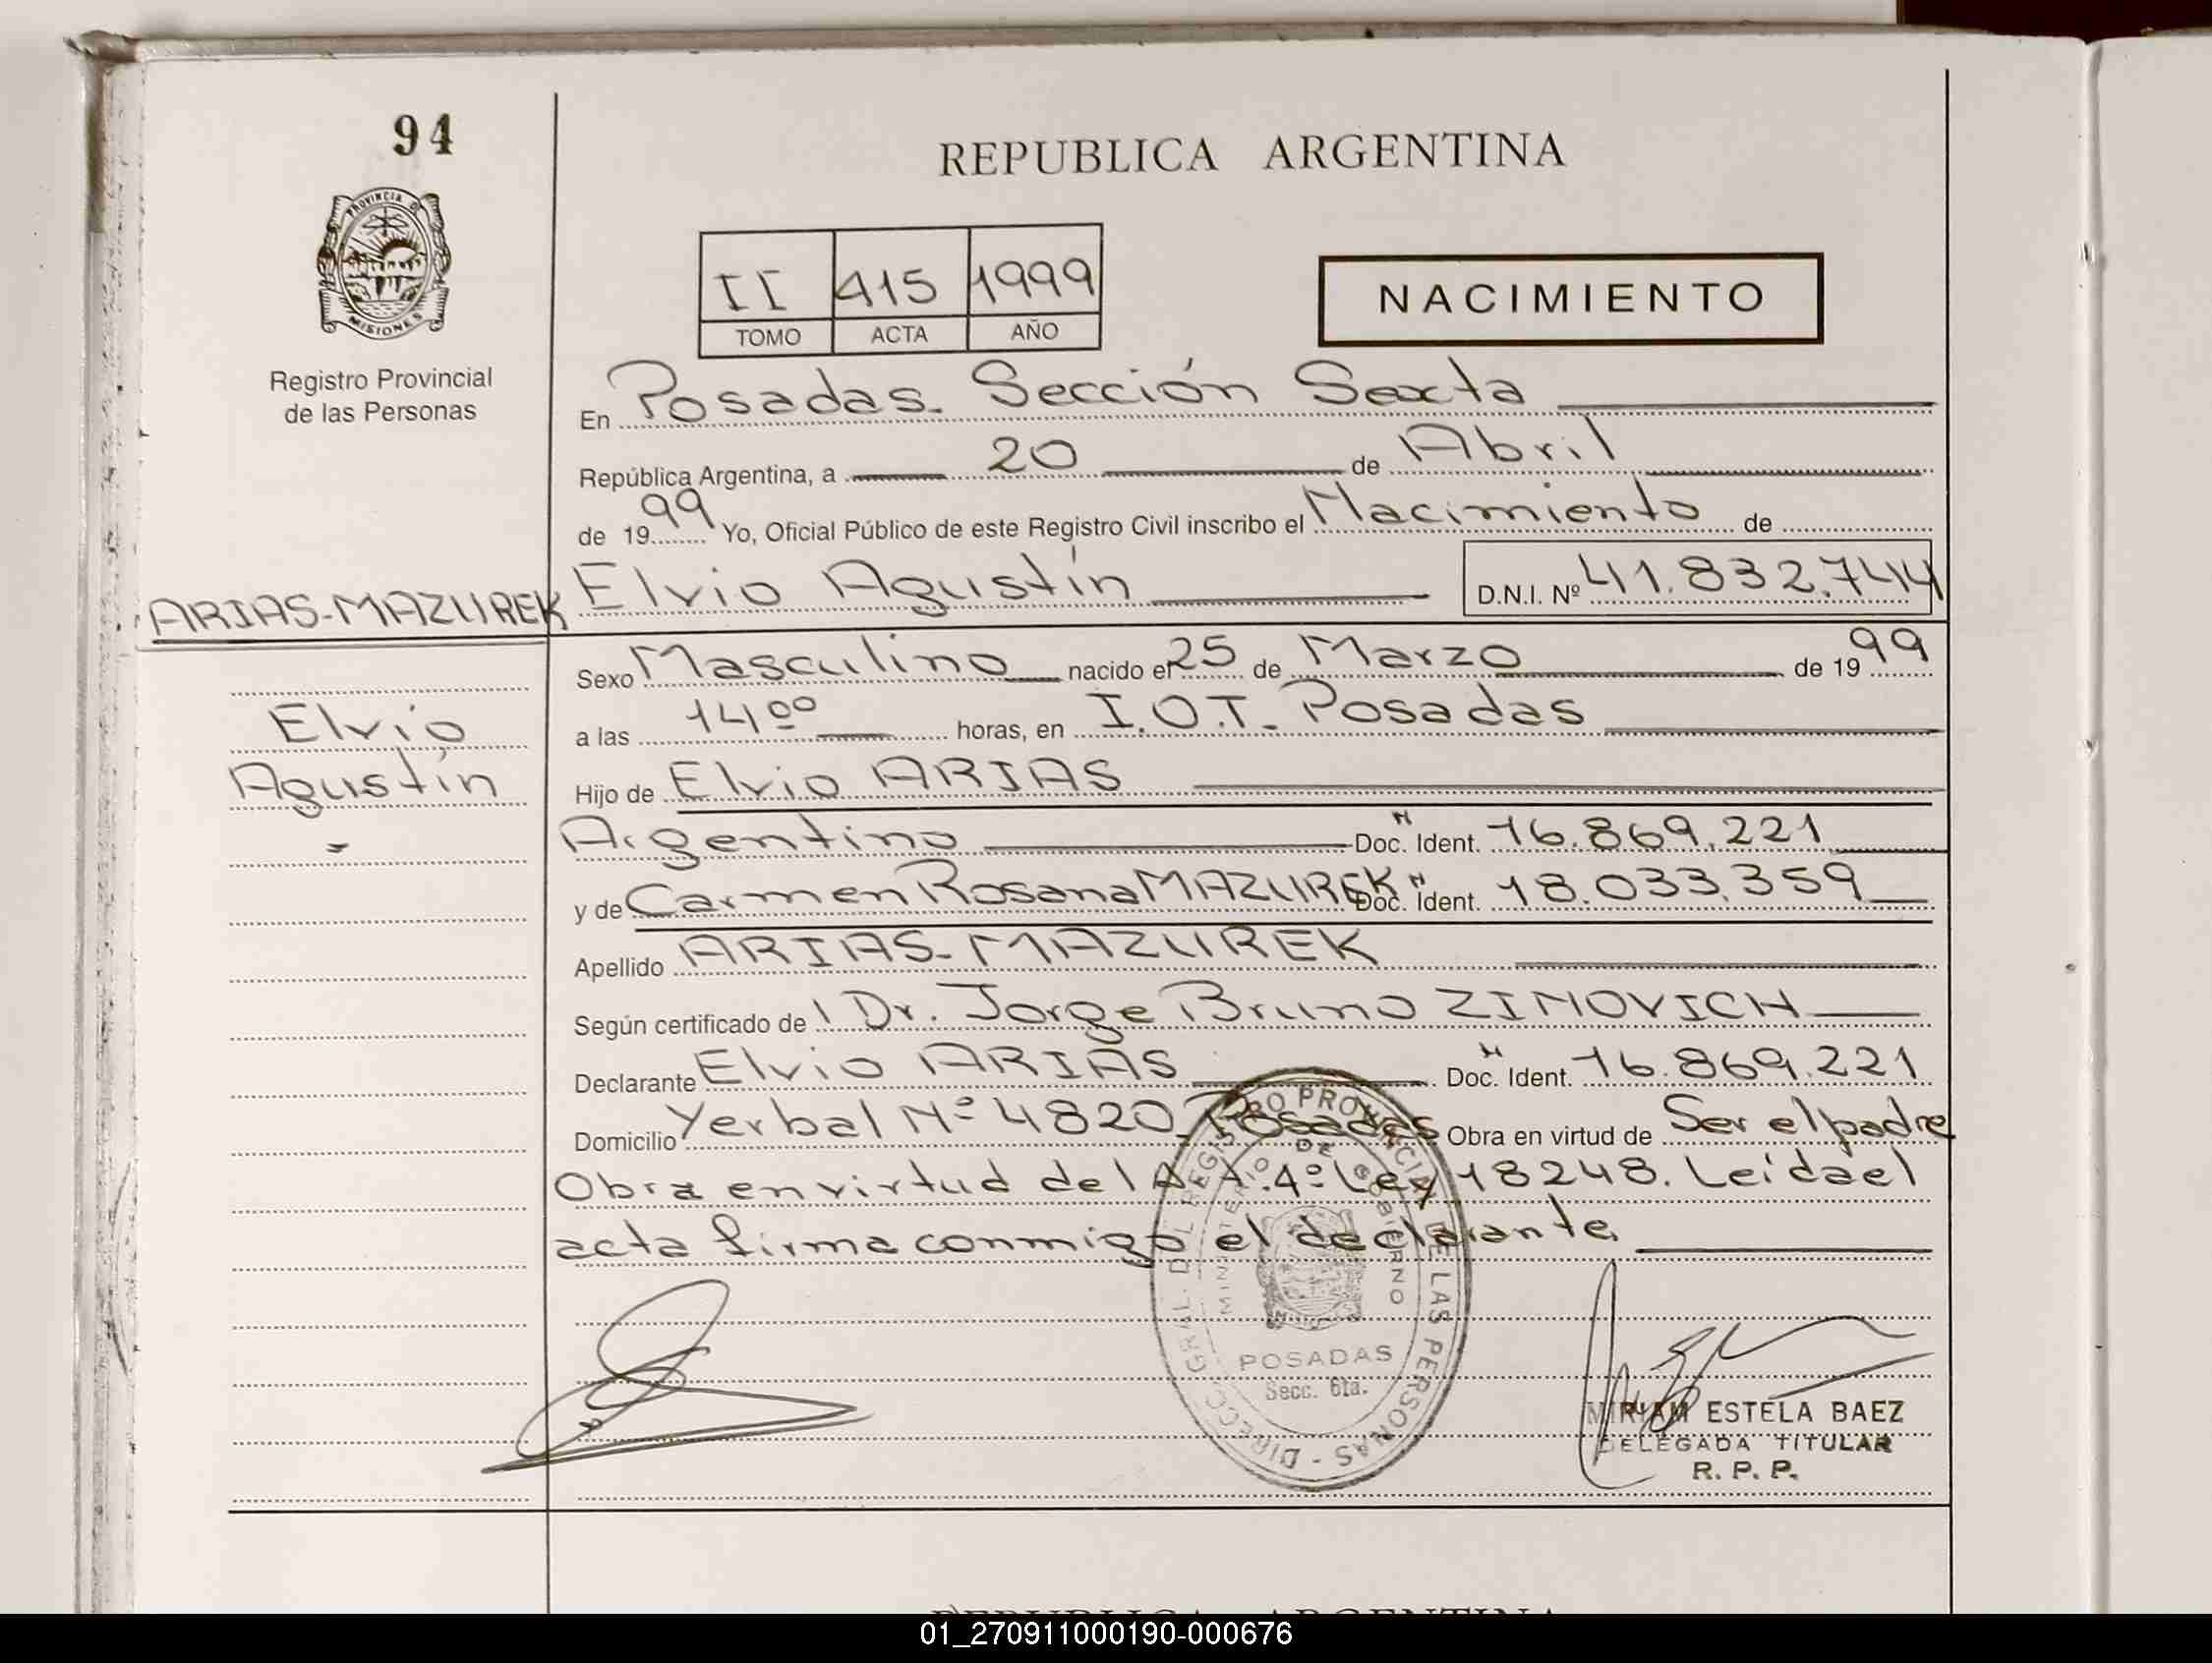 94
REPUBLICA ARGENTINA
PROVINCIA D
MISIONES
Registro Provincial
de las Personas
II 415 1999
TOMO ACTA AÑO
NACIMIENTO
En Posadas. Sección Sexta
República Argentina, a 20 de Abril
de 1999 Yo, Oficial Público de este Registro Civil inscribo el Nacimiento de
ARIAS-MAZUREK Elvio Agustín D.N.I. Nº 41.832.744
Sexo Masculino nacido el 25 de Marzo de 1999
Elvio
a las 14ºº horas, en I.O.T. Posadas
Agustín
Hijo de Elvio ARIAS
Argentino Doc. N Ident. 16.869.221
y de Carmen Rosana MAZUREK Doc. N Ident. 18.033.359
Apellido ARIAS-MAZUREK
Según certificado de l Dr. Jorge Bruno ZINOVICH
Declarante Elvio ARIAS Doc. N Ident. 16.869.221
Domicilio Yerbal Nº 4820. Posadas Obra en virtud de Ser el padre
Obra en virtud del A.T. 4º Ley 18248. Leída el
acta firma conmigo el declarante.
DIRECC. GRAL. DEL REGISTRO PROVINCIAL DE LAS PERSONAS -
MINISTERIO DE GOBIERNO
POSADAS
Secc. 6ta.
MIRIAM ESTELA BAEZ
DELEGADA TITULAR
R. P. P.
REPUBLICA ARGENTINA
01_270911000190-000676